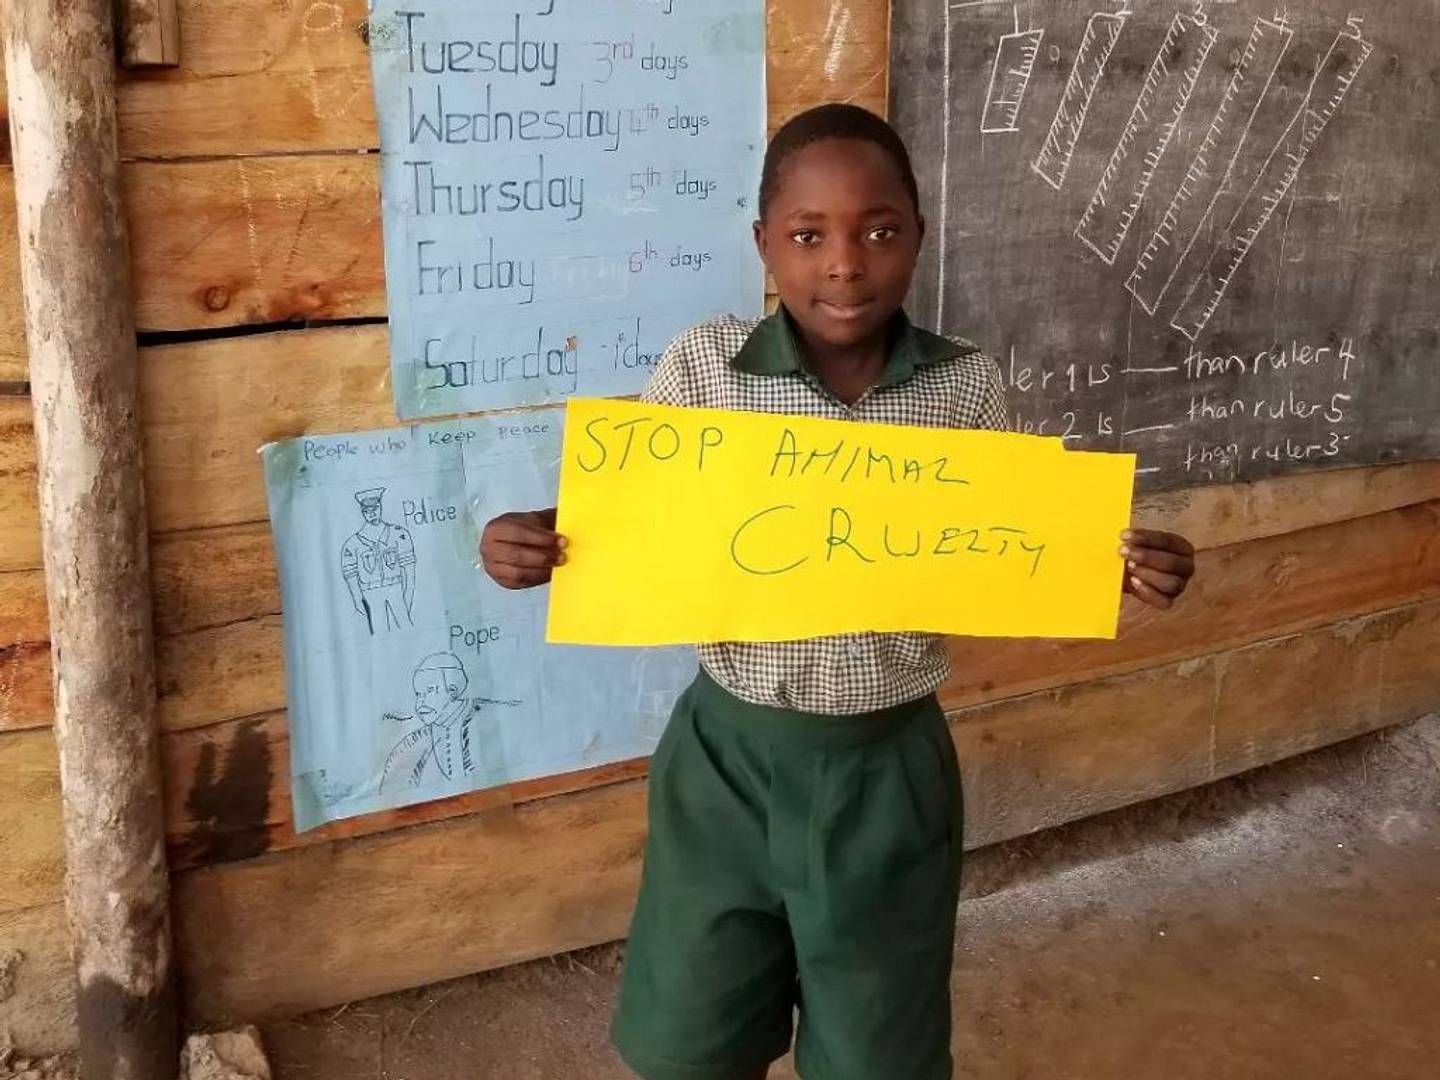 Tuesday 3rd days
Wednesday 4th days
Thursday 5th days
Friday 6th days
Saturday days
People who keep peace
Police
Pope
STOP ANIMAL
CRUELTY
2 3 4 5
ler 1 is — than ruler 4
ler 2 is — than ruler 5
— than ruler 3